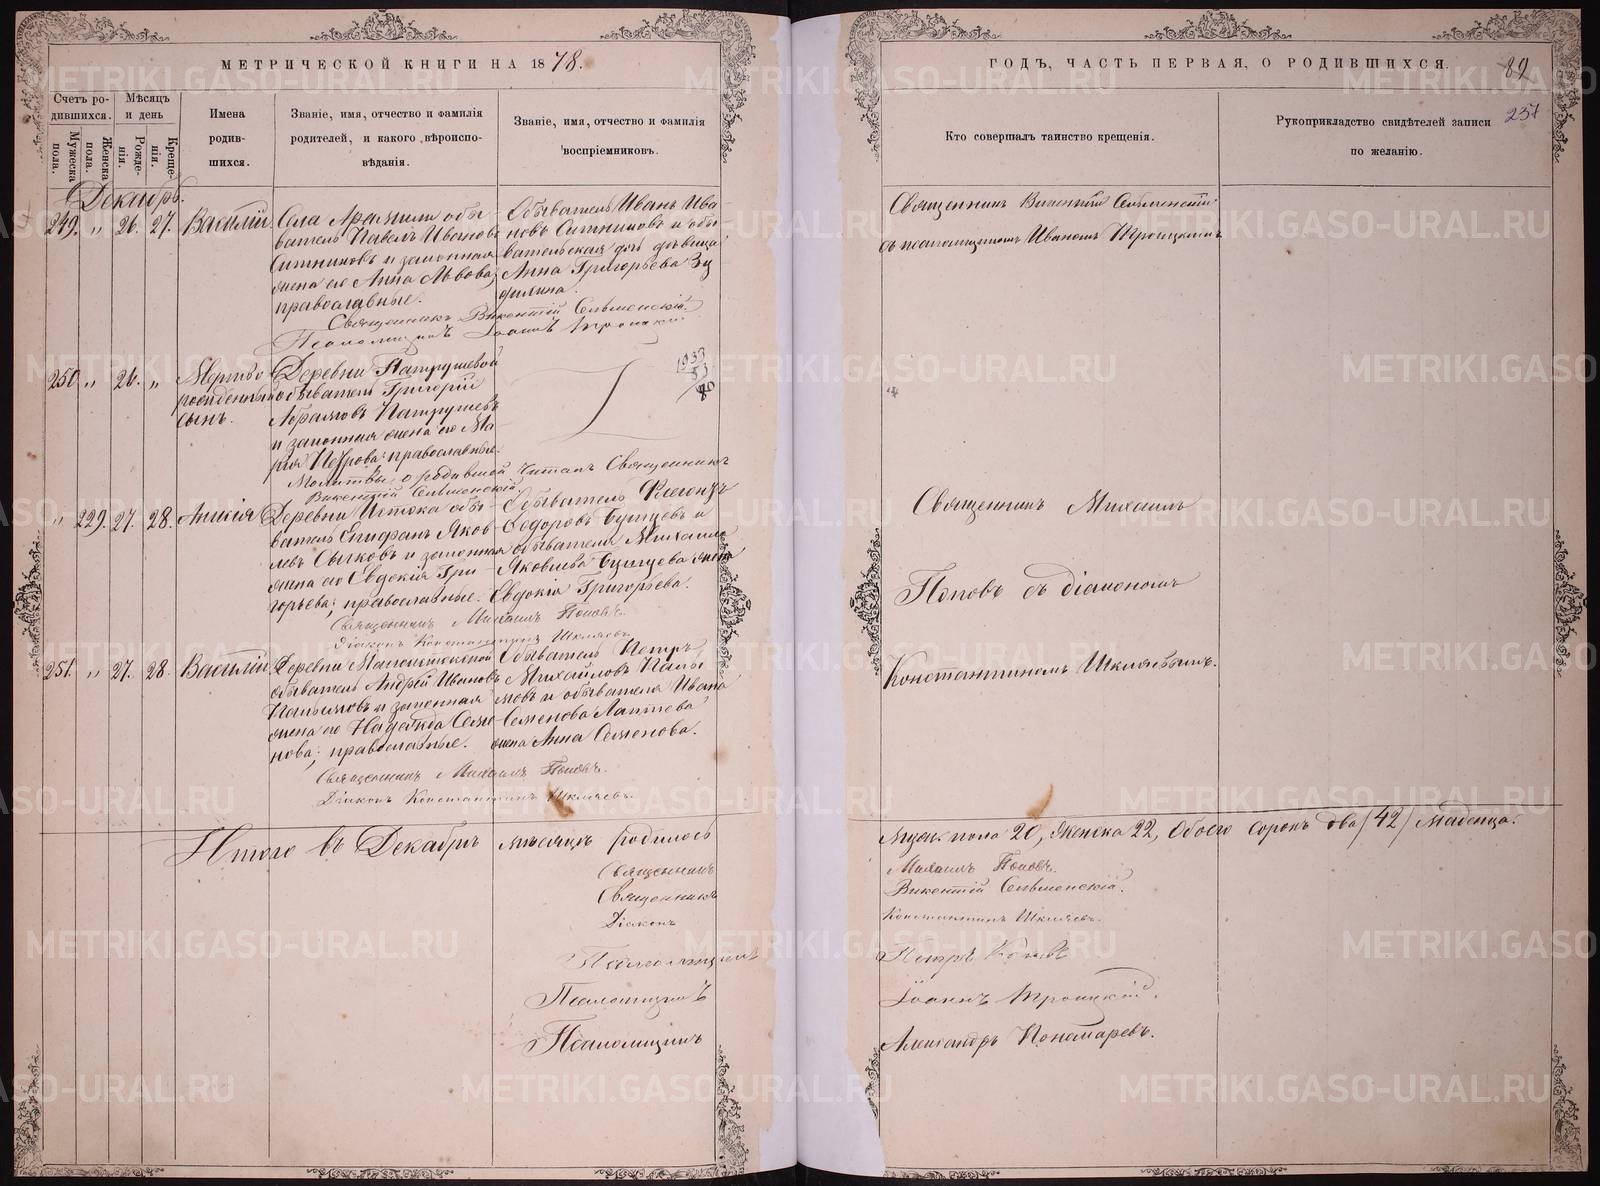 МЕТРИЧЕСКОЙ КНИГИ НА 1878.
Счетъ ро-
дившихся.
Мужеска
пола.
Женска
пола.
Мѣсяцъ
и день
Рожде-
нія.
Креще-
нія.
Имена
родив-
шихся.
Званіе, имя, отчество и фамилія
родителей, и какого вѣроиспо-
вѣданія.
Званіе, имя, отчество и фамилія
воспріемниковъ.
Декабрь.
249. " 26. 27. Василій.
Села Арамили обы-
ватель Павелъ Ивановъ
Ситниковъ и законная
жена его Анна Львова;
православные.
Обыватель Иванъ Ива-
новъ Ситниковъ и обы-
вательская дочь дѣвица
Анна Григорьева
Священникъ Викентій Сельменскій.
Псаломщикъ Іоаннъ Троицкій
250. " 26. "
Мертво
рожденный
сынъ.
Деревни Патрушевой
обыватель Григорій
Абрамовъ Патрушевъ
и законная жена его Ма-
рія Петрова; православные.
Молитвы о родившей читалъ Священникъ
Викентій Сельменскій.
" 229. 27. 28. Анисія
Деревни Истока обы-
ватель Епифанъ Яков-
левъ Сычковъ и законная
жена его Евдокія Гри-
горьева; православные.
Обыватель Флегонтъ
Федоровъ и
обывателя Михаила
Яковлева жена
Евдокія Григорьева.
Священникъ Михаилъ Поповъ.
Діаконъ Константинъ Шкляевъ.
251. " 27. 28. Василій.
Деревни
обыватель Андрей Ивановъ
и законная
жена его Надежда Семе-
нова; православные.
Обыватель Петръ
Михайловъ
и обывателя Ивана
Семенова Лаптева
жена Анна Семенова.
Священникъ Михаилъ Поповъ.
Діаконъ Константинъ Шкляевъ.
Итого въ Декабрѣ мѣсяцѣ родилось
Священникъ
Священникъ
Діаконъ
Псаломщикъ
Псаломщикъ
Псаломщикъ
ГОДЪ, ЧАСТЬ ПЕРВАЯ, О РОДИВШИХСЯ.
89
237
Кто совершалъ таинство крещенія.
Рукоприкладство свидѣтелей записи
по желанію.
Священникъ Викентій Сельменскій
съ псаломщикомъ Иваномъ Троицкимъ
Священникъ Михаилъ
Поповъ съ діакономъ
Константиномъ Шкляевымъ.
Мужск. пола 20, Женска 22, Обоего сорокъ два (42) младенца.
Михаилъ Поповъ.
Викентій Сельменскій.
Константинъ Шкляевъ.
Петръ
Іоаннъ Троицкій.
Александръ Пономаревъ.
METRIKI.GASO-URAL.RU